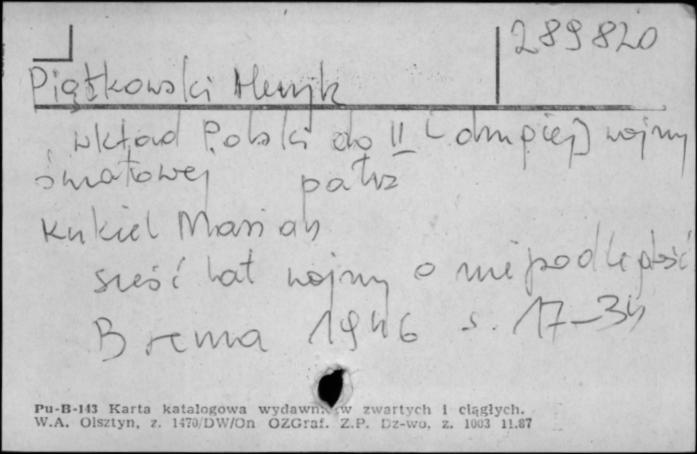 289820
Piątkowski Henryk
Wkład Polski do II [drugiej] wojny
światowej patrz
Kukiel Marian
Sześć lat wojny o niepodległość
Brema 1946 s. 17-34
Pu-B-143 Karta katalogowa wydawnictw zwartych i ciągłych.
W.A. Olsztyn, z. 1470/DW/On OZGraf. Z.P. Dz-wo, z. 1003 11.87